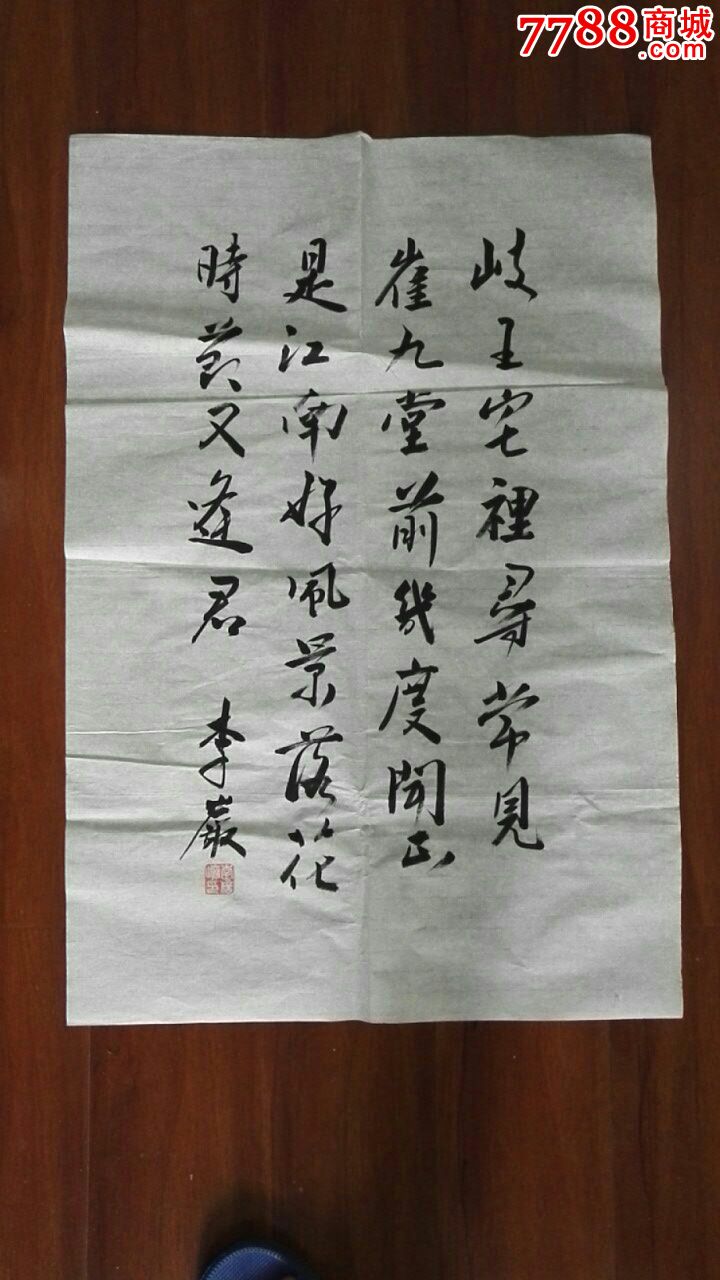 7788商城
.com
歧王宅裡尋常見
崔九堂前幾度聞正
是江南好風景落花
時節又逢君 李巖